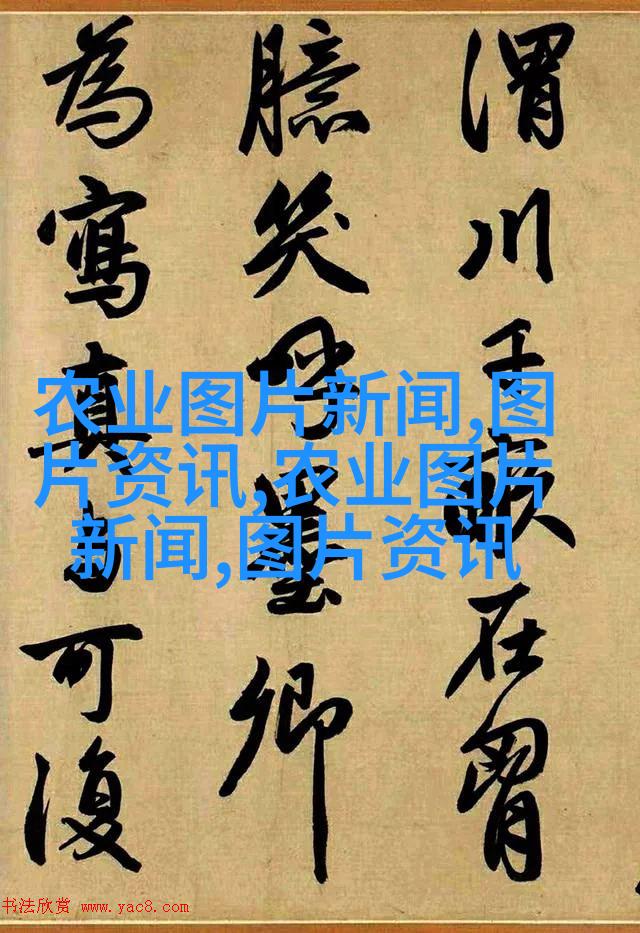 渭川千畝在胷
臆笑呼墨卿
為寫真与可復
农业图片新闻,图
片资讯,农业图片
新闻,图片资讯
书法欣赏 www.yac8.com